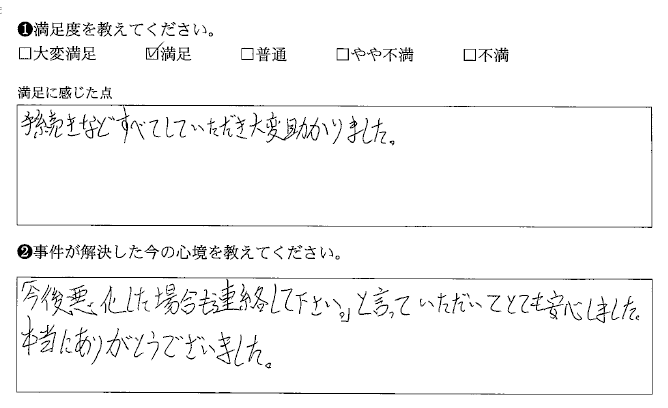 ❶満足度を教えてください。
□大変満足 ☑満足 □普通 □やや不満 □不満
満足に感じた点
手続きなどすべてしていただき大変助かりました。
❷事件が解決した今の心境を教えてください。
「今後悪化した場合も連絡して下さい。」と言っていただいてとても安心しました。
本当にありがとうございました。